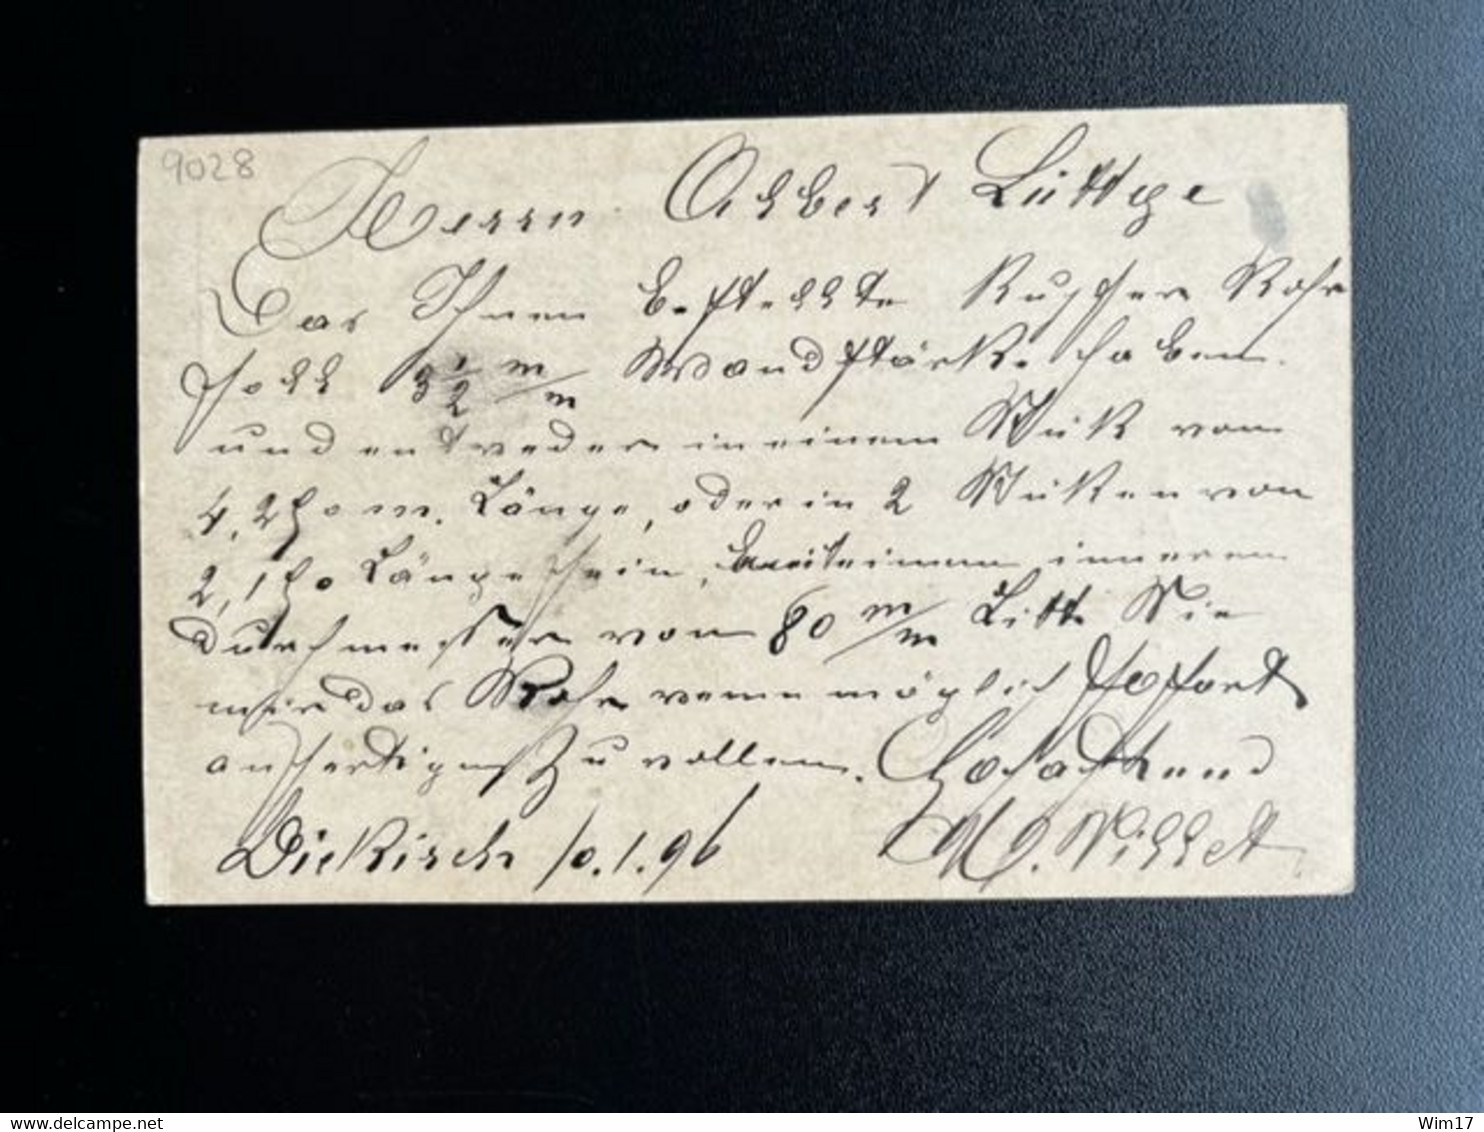 9028
Herrn Albert Lüttge
Das Ihnen bestellte Kupfer Rohr
soll 3 1/2 m/m Wandstärke haben
und entweder in einem Stük vom
4,250 m. Länge, oder in 2 Stüken von
2,150 Länge sein, einem inneren
durchmesser vom 80 m/m Bitte Sie
mir das Rohr wenn möglich sofort
anfertigen zu wollen. Hochachtend
Diekirch 10.1.96
Wim17